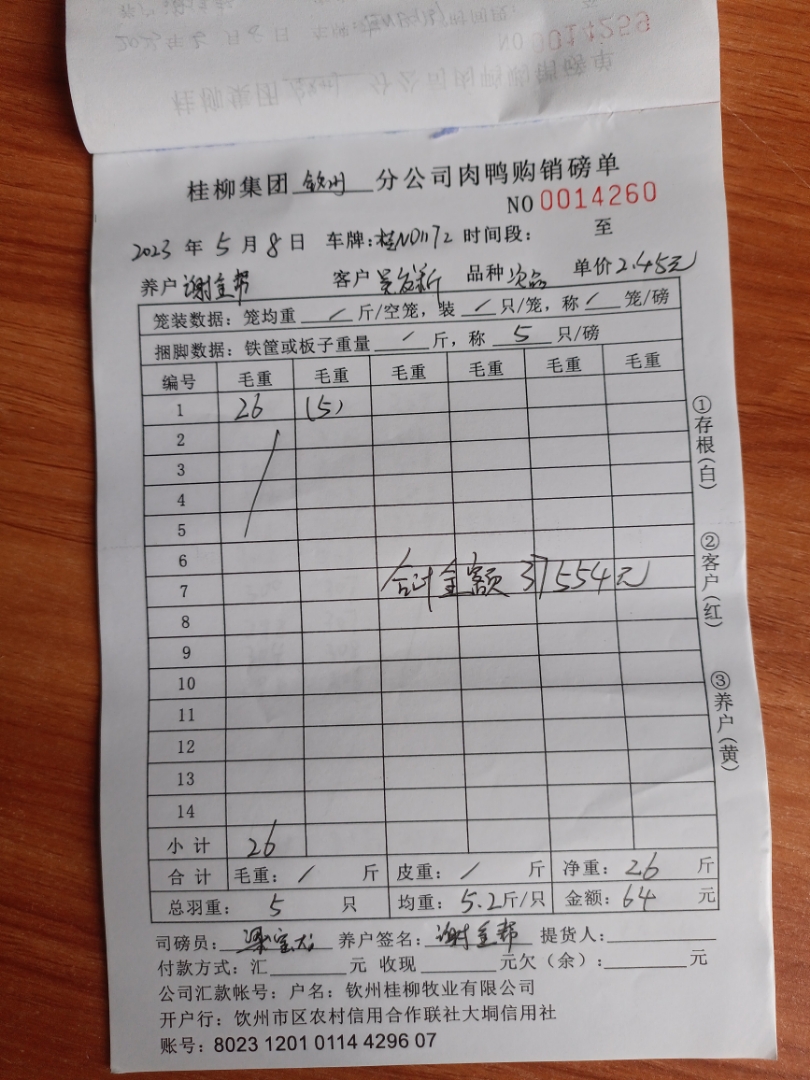 NO 0014259
桂柳集团 钦州 分公司肉鸭购销磅单
桂柳集团 钦州 分公司肉鸭购销磅单
NO 0014260
2023 年 5 月 8 日 车牌:桂N01172 时间段: 至
养户 谢金帮 客户 吴 新 品种 次品 单价 2.45元
笼装数据:笼均重 / 斤/空笼,装 / 只/笼,称 / 笼/磅
捆脚数据:铁筐或板子重量 / 斤,称 5 只/磅
编号 毛重 毛重 毛重 毛重 毛重 毛重
1 26 (5)
2
3
4
5
6
7 合计金额 37554元
8
9
10
11
12
13
14
小计 26
合计 毛重: / 斤 皮重: / 斤 净重: 26 斤
总羽重: 5 只 均重: 5.2斤/只 金额: 64 元
司磅员: 梁宝 养户签名: 谢金帮 提货人:
付款方式:汇 元 收现 元欠(余): 元
公司汇款帐号:户名:钦州桂柳牧业有限公司
开户行:饮州市区农村信用合作联社大垌信用社
账号:8023 1201 0114 4296 07
①存根(白)
②客户(红)
③养户(黄)